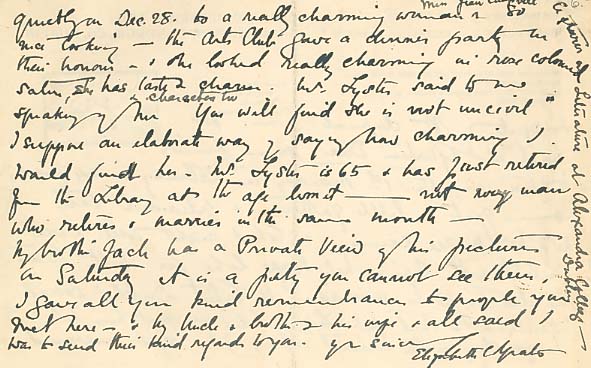 Miss Jean Campbell
quietly on Dec. 28. to a really charming woman & so
nice looking — the Arts Club gave a dinner party in
their honour — & she looked really charming in rose coloured
satin, she has taste & charm. Mr. Lyster said to me
& character too
speaking of her "You will find she is not uncivil"
I suppose an elaborate way of saying how charming I
would find her — Mr. Lyster is 65 & has just retired
from the Library at the age limit — not many man
who retires & marries in the same month —
My brother Jack has a Private View of his pictures
on Saturday it is a pity you cannot see them,
I gave all your kind remembrances to people you
met here — & my Uncle & brother & his wife & all said I
was to send their kind regards to you. yr sincerely
Elizabeth C Yeats
Literature at Alexandra College —
Dublin